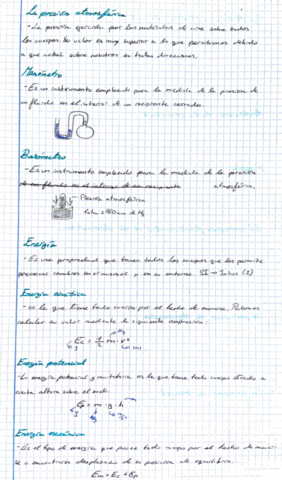 La presión atmosférica
- La presión ejercida por las moléculas de aire sobre todos
los cuerpos. Su valor es muy superior a lo que percibimos debido
a que actúa sobre nosotros en todas direcciones.
Manómetro
- Es un instrumento empleado para la medida de la presión de
un fluido en el interior de un recipiente cerrado.
Barómetro
- Es un instrumento empleado para la medida de la presión
de un fluido en el interior de un recipiente atmosférica.
Presión atmosférica
1atm = 760mm de Hg
Energía
- Es una propiedad que tienen todos los cuerpos que les permite
provocar cambios en sí mismos y en su entorno. SI → Julios (J)
Energía cinética
- es la que tiene todo cuerpo por el hecho de moverse. Podemos
calcular su valor mediante la siguiente expresión:
Kg
Ec = 1/2 m · v²
J m/s
Energía potencial
- La energía potencial gravitatoria es la que tiene todo cuerpo situado a
cierta altura sobre el suelo.
Ep = m · g · h
J Kg
Energía mecánica
- Es el tipo de energía que posee todo cuerpo por el hecho de mover-
se o encontrarse desplazado de su posición de equilibrio.
Em = Ec + Ep